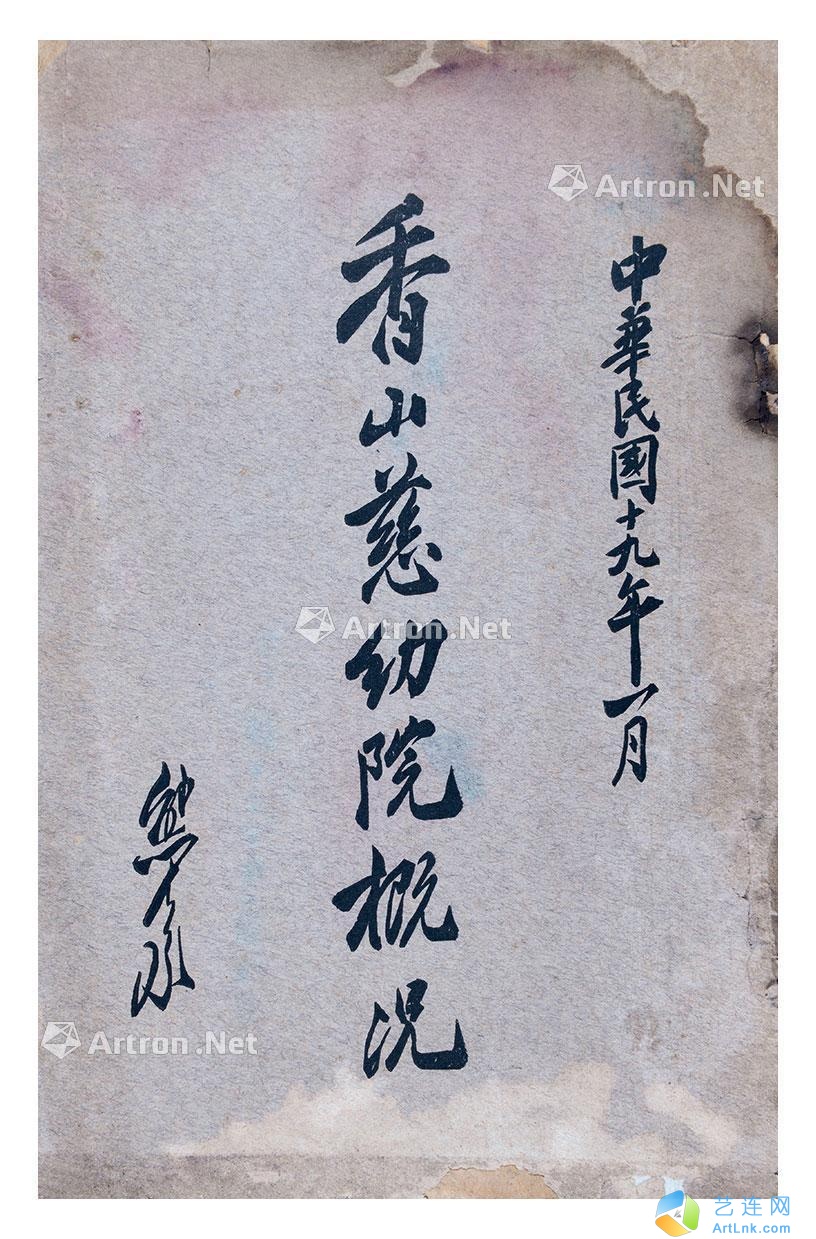 中華民國十九年一月
香山慈幼院概况
熊
Artron.Net
Artron.Net
Artron.Net
艺连网
ArtLnk.com